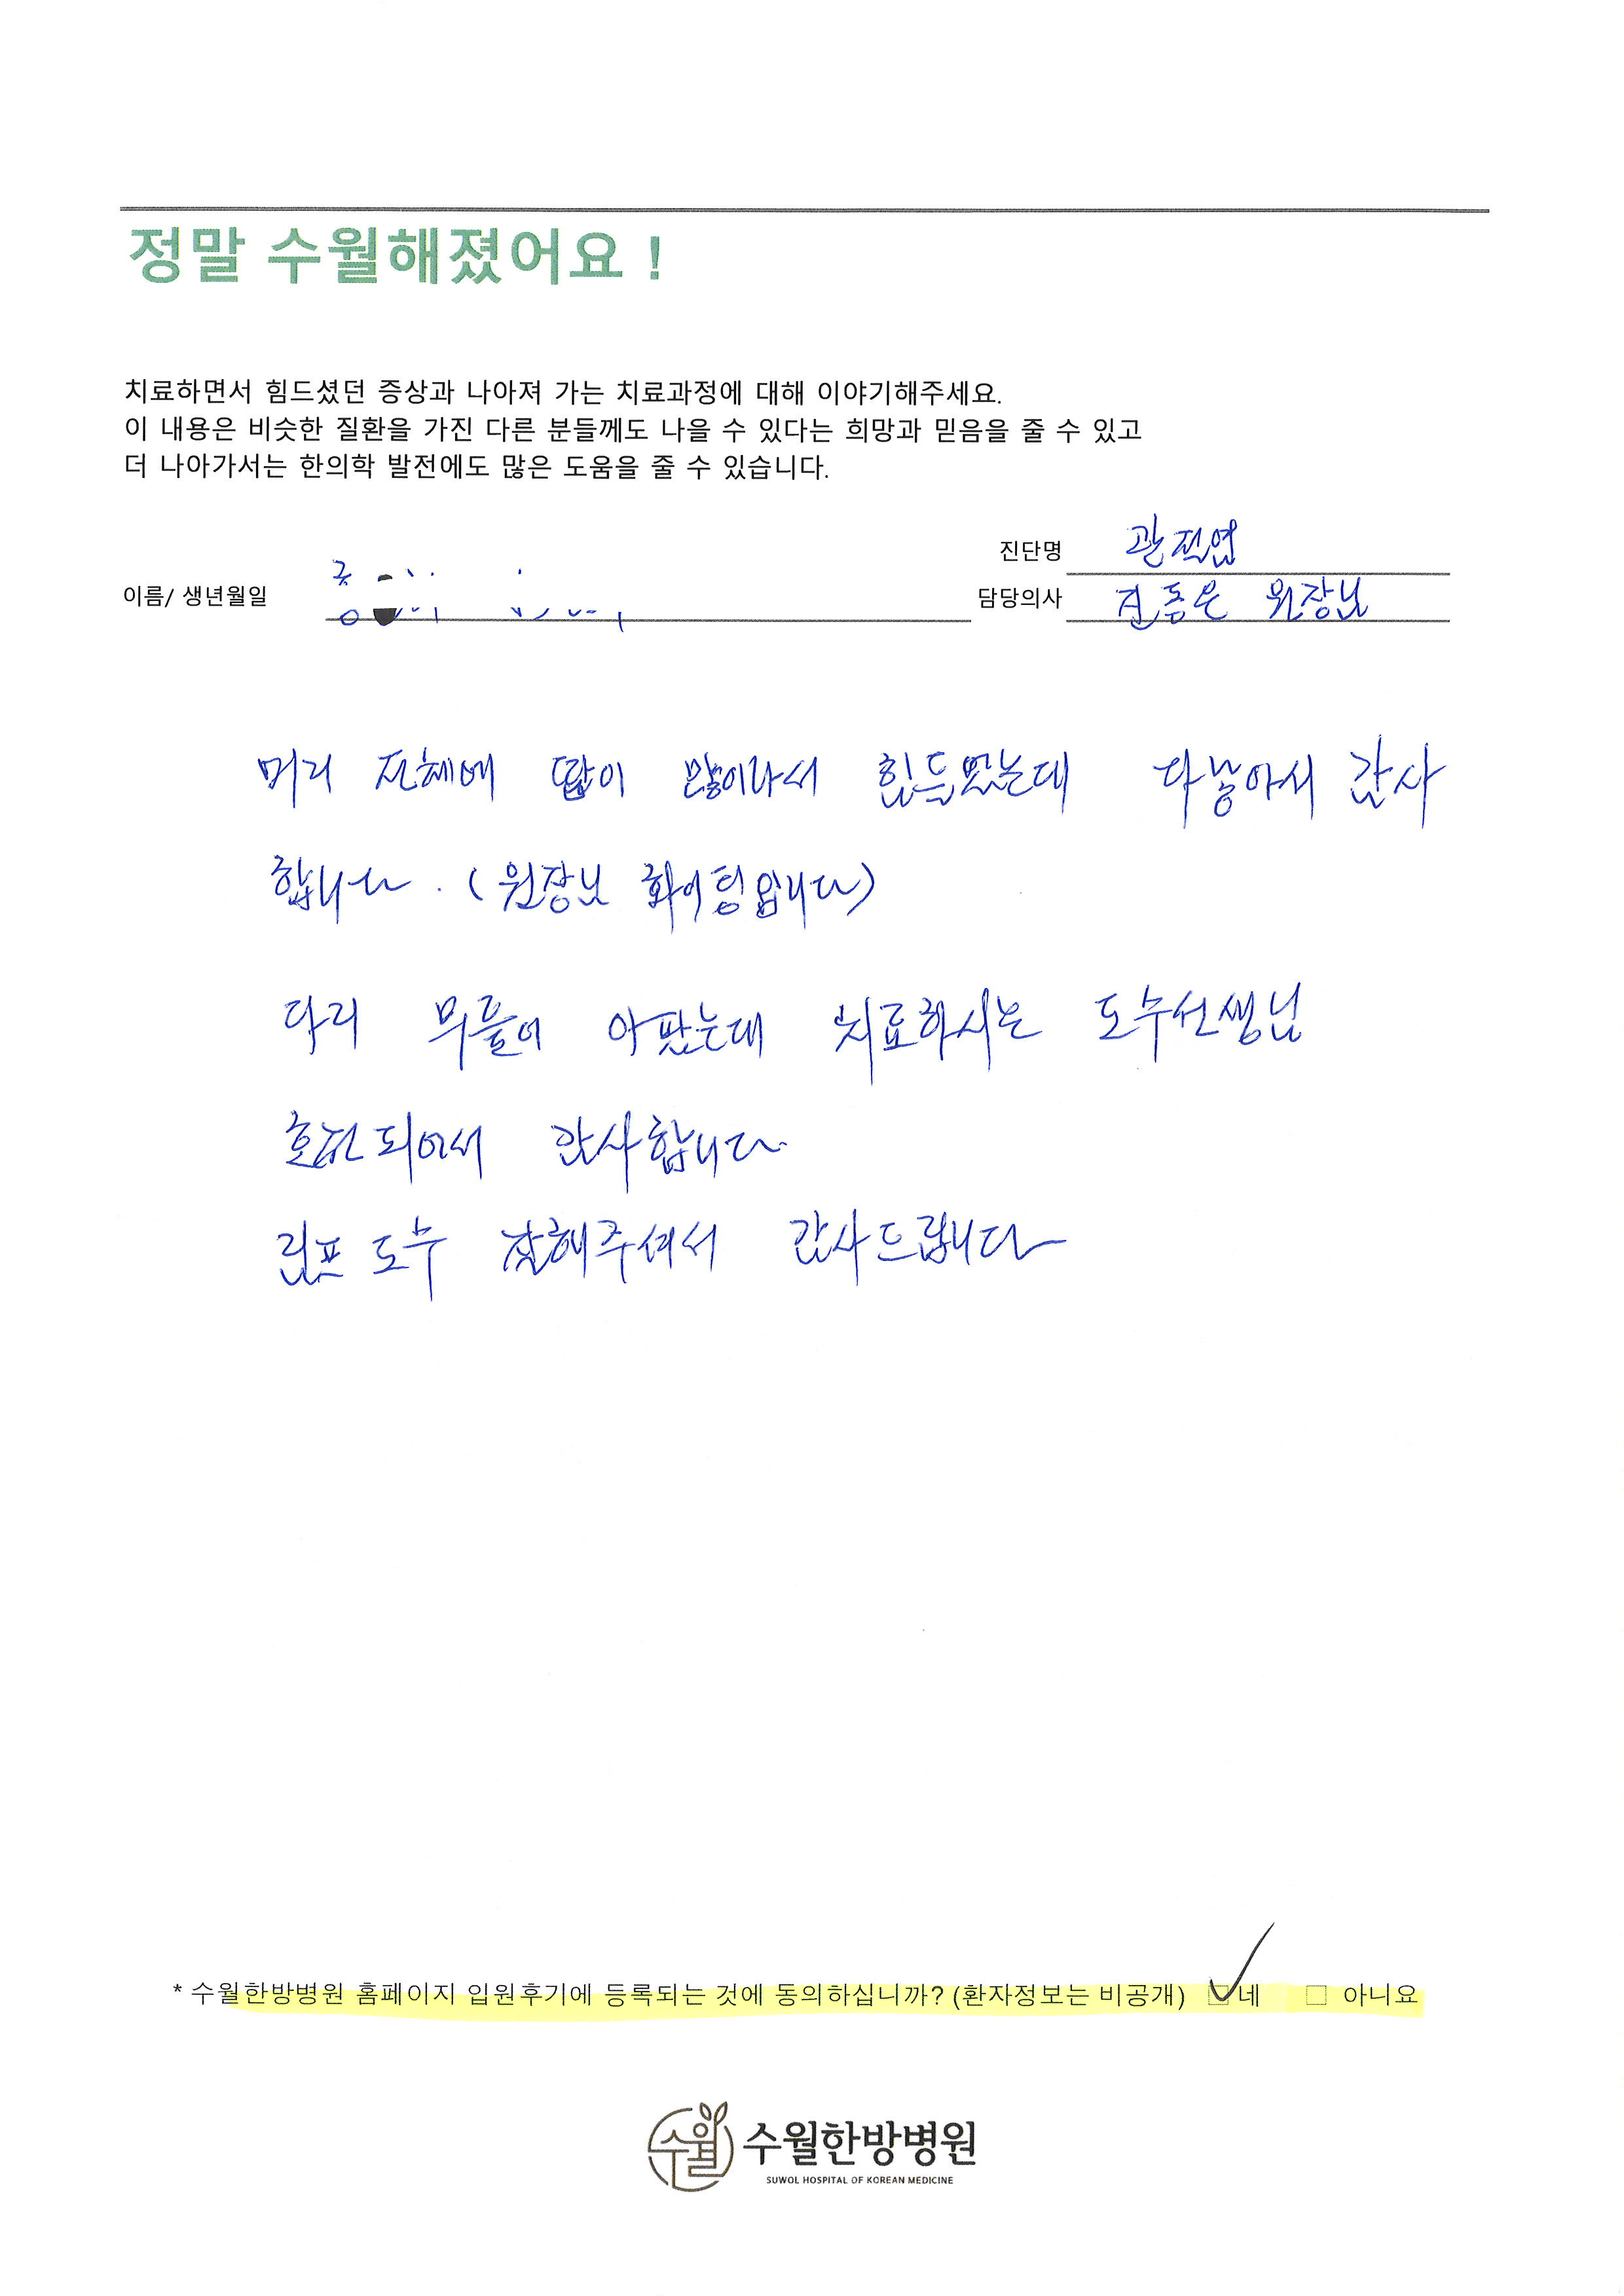 정말 수월해졌어요 !
치료하면서 힘드셨던 증상과 나아져 가는 치료과정에 대해 이야기해주세요.
이 내용은 비슷한 질환을 가진 다른 분들께도 나을 수 있다는 희망과 믿음을 줄 수 있고
더 나아가서는 한의학 발전에도 많은 도움을 줄 수 있습니다.
이름/ 생년월일
진단명 관절염
담당의사 전종은 원장님
머리 전체에 땀이 많이나서 힘들었는데 다낳아서 감사
합니다. (원장님 화이팅입니다)
다리 무릎이 아팠는데 치료하시는 도수선생님
호전되어서 감사합니다.
림프 도수 잘해주셔서 감사드립니다
* 수월한방병원 홈페이지 입원후기에 등록되는 것에 동의하십니까? (환자정보는 비공개) □네 □ 아니요
수월
수월한방병원
SUWOL HOSPITAL OF KOREAN MEDICINE